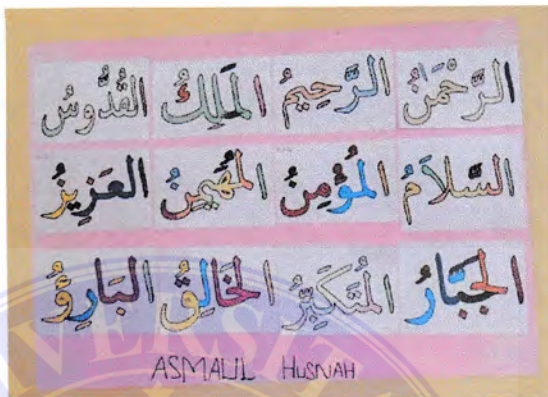 الرَّحْمَنُ الرَّحِيمُ المَلِكُ القُدُّوسُ
السَّلاَمُ المُؤْمِنُ المُهَيْمِنُ العَزِيزُ
الجَبَّارُ المُتَكَبِّرُ الخَالِقُ البَارِؤُ
ASMAUL HUSNAH